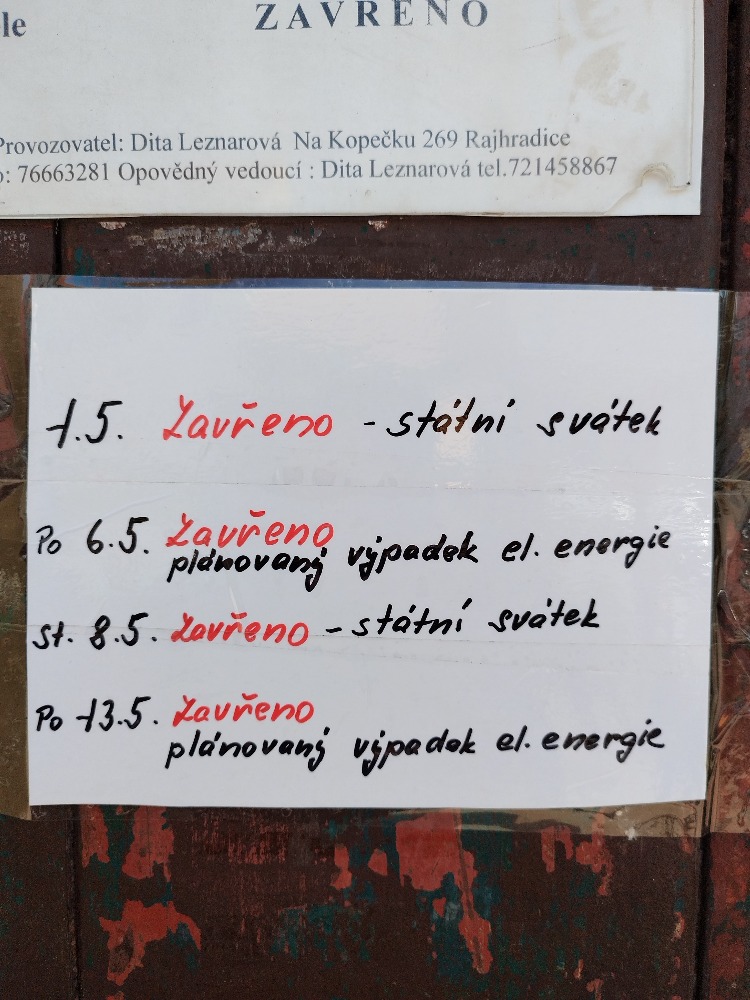 le
ZAVŘENO
Provozovatel: Dita Leznarová Na Kopečku 269 Rajhradice
o: 76663281 Opovědný vedoucí : Dita Leznarová tel.721458867
1.5. Zavřeno - státní svátek
Po 6.5. Zavřeno
plánovaný výpadek el. energie
st. 8.5. Zavřeno - státní svátek
Po 13.5. Zavřeno
plánovaný výpadek el. energie